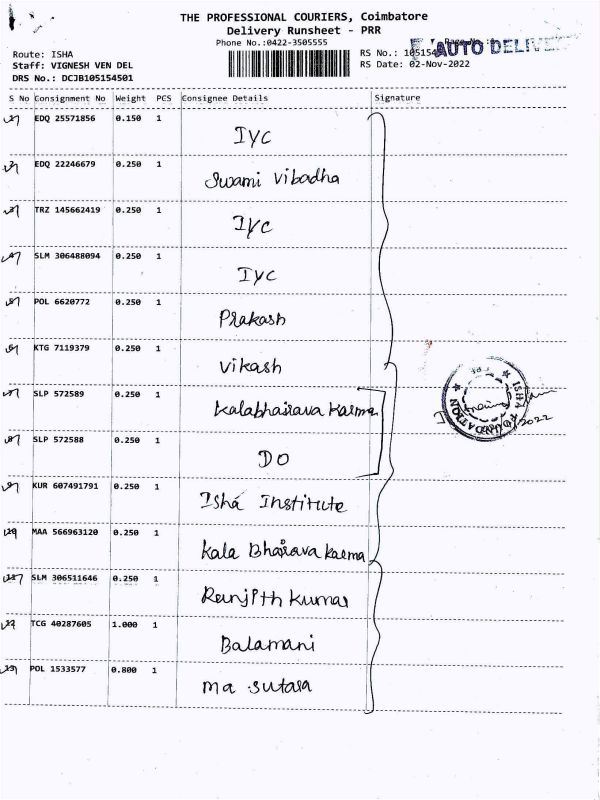 THE PROFESSIONAL COURIERS, Coimbatore
Delivery Runsheet - PRR
Phone No.:0422-3505555
AUTO DELIVE
Route: ISHA
RS No.: 10515
Staff: VIGNESH VEN DEL
RS Date: 02-Nov-2022
DRS No.: DCJB105154501
S No Consignment No Weight PCS Consignee Details Signature
1 EDQ 25571856 0.150 1 IYC
2 EDQ 22246679 0.250 1 Swami Vibadha
3 TRZ 145662419 0.250 1 IYC
4 SLM 306488094 0.250 1 IYC
5 POL 6620772 0.250 1 Prakash
6 KTG 7119379 0.250 1 Vikash
7 SLP 572589 0.250 1 Kalabhairava Karma
8 SLP 572588 0.250 1 DO
9 KUR 607491791 0.250 1 Isha Institute
10 MAA 566963120 0.250 1 Kala Bhairava Karma
11 SLM 306511646 0.250 1 Ranjith Kumar
12 TCG 40287605 1.000 1 Balamani
13 POL 1533577 0.800 1 Ma Sutara
ISHA FOUNDATION
2022